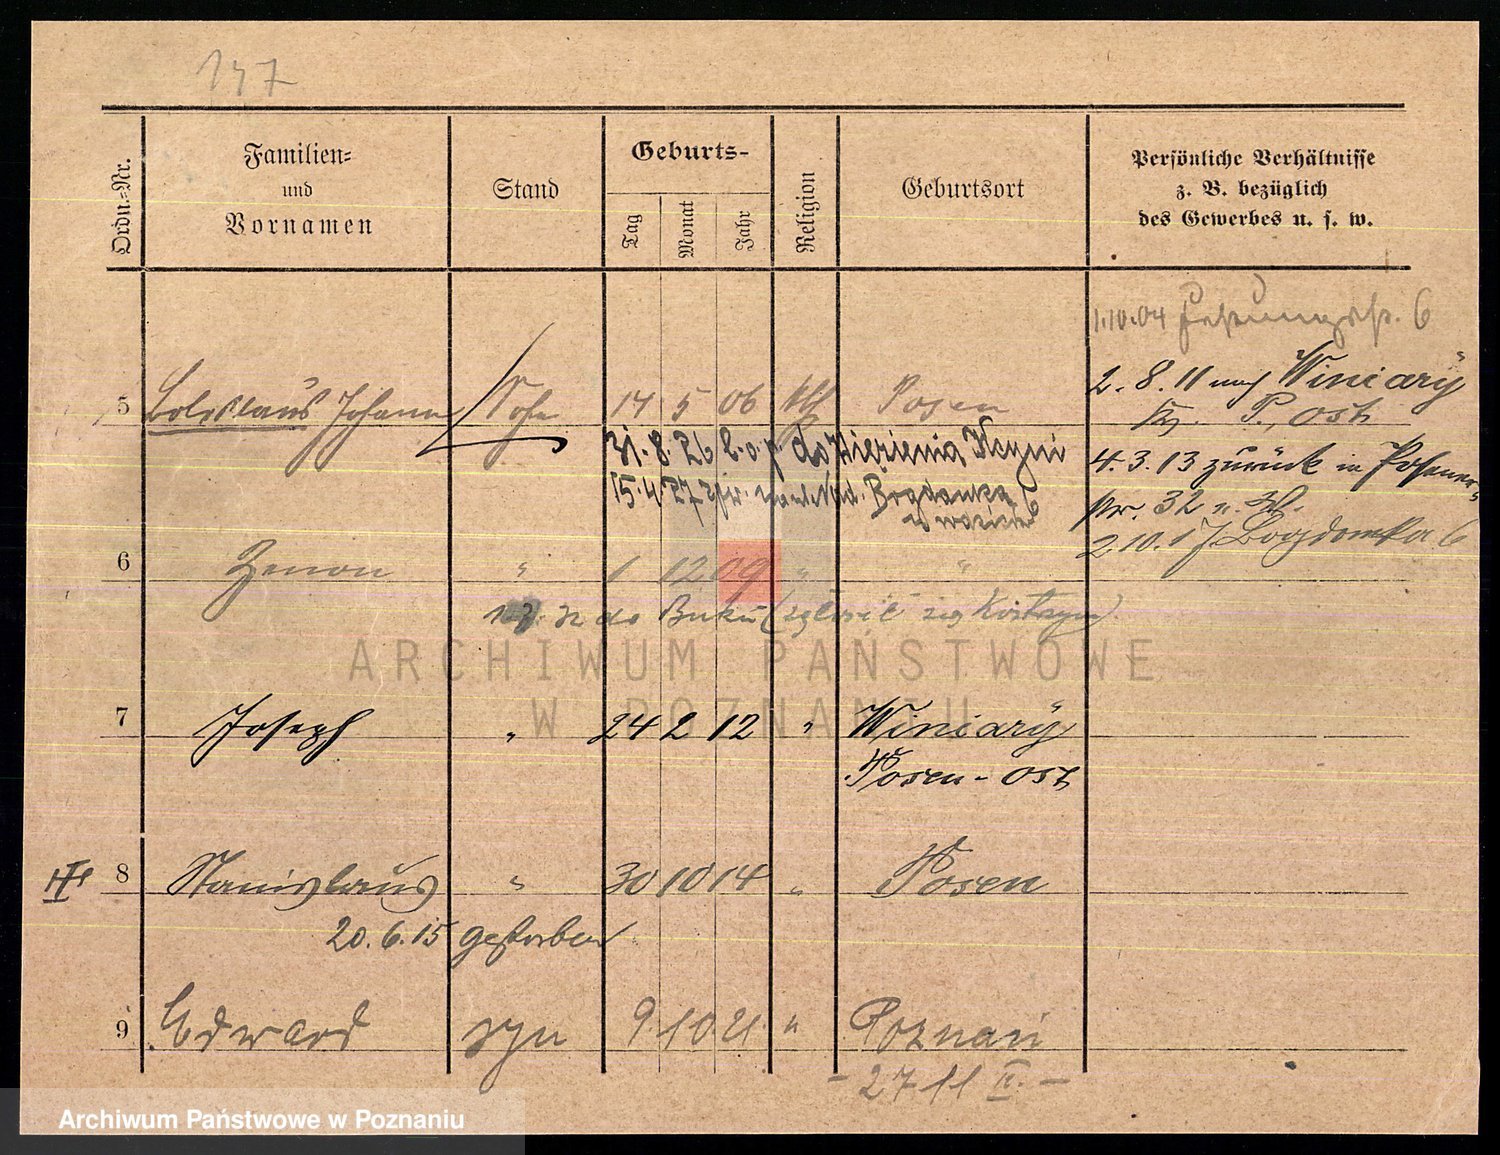 147
Ordn.-Nr.
Familien-
und
Vornamen
Stand
Geburts-
Tag
Monat
Jahr
Religion
Geburtsort
Persönliche Verhältnisse
z. B. bezüglich
des Gewerbes u. s. w.
1.10.04 6
5 Boleslaus Johann Sohn 14 5 06 kth Posen
2.8.11 nach Winiary
P. Ost
31.8.26 do więzienia
15.4.27 Bogdanka 6
4.3.13 zurück in Posen
32
2.10.17 Bogdanka 6
6 Zenon " 1 12 09 " "
32 do Buku Kostrzyn)
ARCHIWUM PAŃSTWOWE
W POZNANIU
7 Joseph " 24 2 12 " Winiary
Posen-Ost
8 Stanislaus " 30 10 14 " Posen
20.6.15 gestorben
9 Edward syn 9 10 21 " Poznań
- 27 11 -
Archiwum Państwowe w Poznaniu